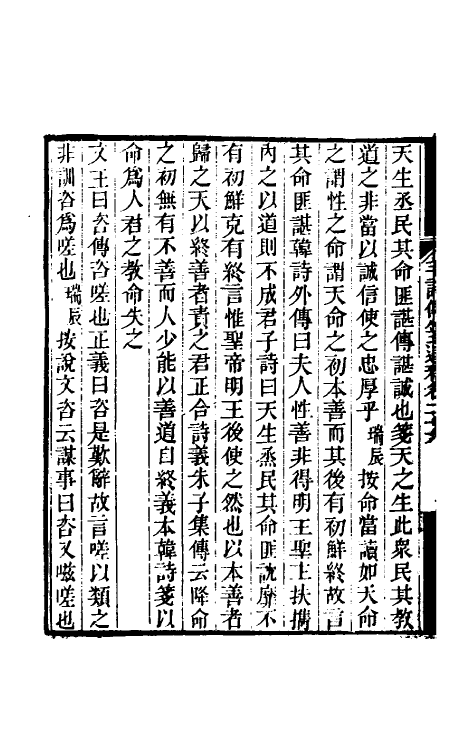 天生烝民其命匪諶傳諶誠也箋天之生此衆民其敎
道之非當以誠信使之忠厚乎瑞辰按命當讀如天命
之謂性之命謂天命之初本善而其後有初鮮終故言
其命匪諶韓詩外傳曰夫人性善非得明王聖主扶擕
內之以道則不成君子詩曰天生烝民其命匪訦靡不
有初鮮克有終言惟聖帝明王後使之然也以本善者
歸之天以終善者責之君正合詩義朱子集傳云降命
之初無有不善而人少能以善道自終義本韓詩箋以
命爲人君之敎命失之
文王曰咨傳咨嗟也正義曰咨是歎辭故言嗟以類之
非訓咨爲嗟也瑞辰按說文咨云謀事曰咨又嗞嗟也